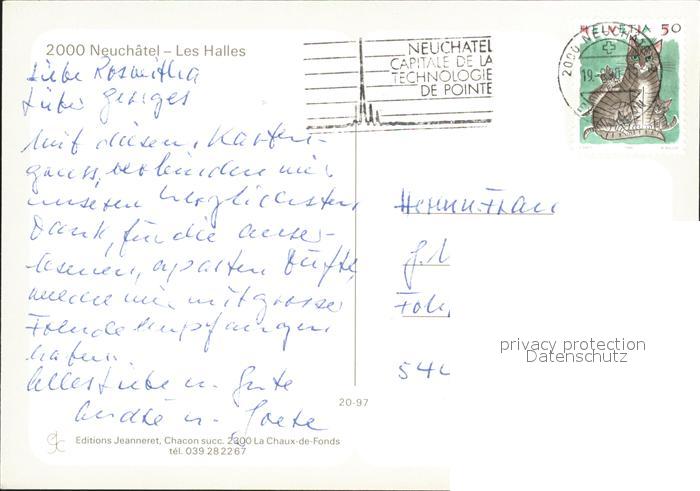 2000 Neuchâtel – Les Halles
Liebe Rosmitha
Lieber Georges
Mit diesen, Karten-
gruss, verbinden wir
unseren herzlichsten
Dank, für die auser-
lesenen, aparten Düfte,
welche wir mit grosser
Freude empfangen
haben.
Alles Liebe u. Gute
u.
20-97
Editions Jeanneret, Chacon succ. 2300 La Chaux-de-Fonds
tél. 039 28 22 67
NEUCHATEL
CAPITALE DE LA
TECHNOLOGIE
DE POINTE
2000 NEUCHATEL
HELVETIA 50
Herrn u. Frau
544
privacy protection
Datenschutz